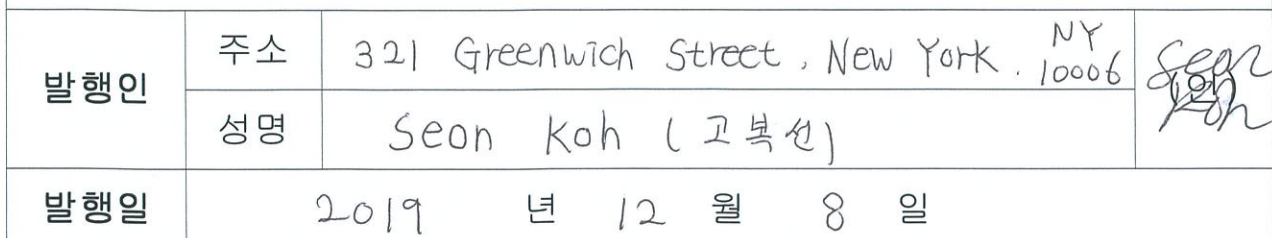 발행인
주소 321 Greenwich Street, New York. NY 10006
성명 Seon Koh (고복선)
Seon Koh (인)
발행일 2019 년 12 월 8 일